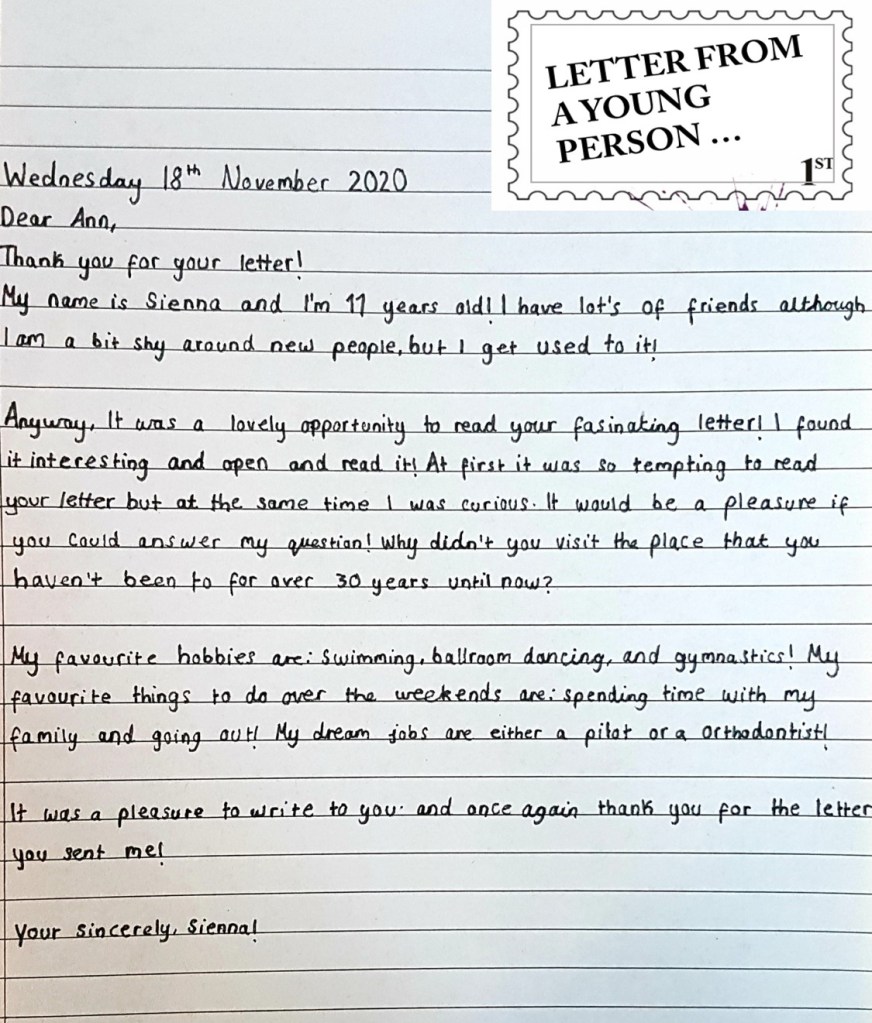 LETTER FROM
A YOUNG
PERSON ...
1ST
Wednesday 18th November 2020
Dear Ann,
Thank you for your letter!
My name is Sienna and I'm 11 years old! I have lot's of friends although
I am a bit shy around new people, but I get used to it!
Anyway, It was a lovely opportunity to read your fasinating letter! I found
it interesting and open and read it! At first it was so tempting to read
your letter but at the same time I was curious. It would be a pleasure if
you could answer my question! Why didn't you visit the place that you
haven't been to for over 30 years until now?
My favourite hobbies are: swimming, ballroom dancing, and gymnastics! My
favourite things to do over the weekends are: spending time with my
family and going out! My dream jobs are either a pilot or a orthodontist!
It was a pleasure to write to you. and once again thank you for the letter
you sent me!
Your sincerely, Sienna!